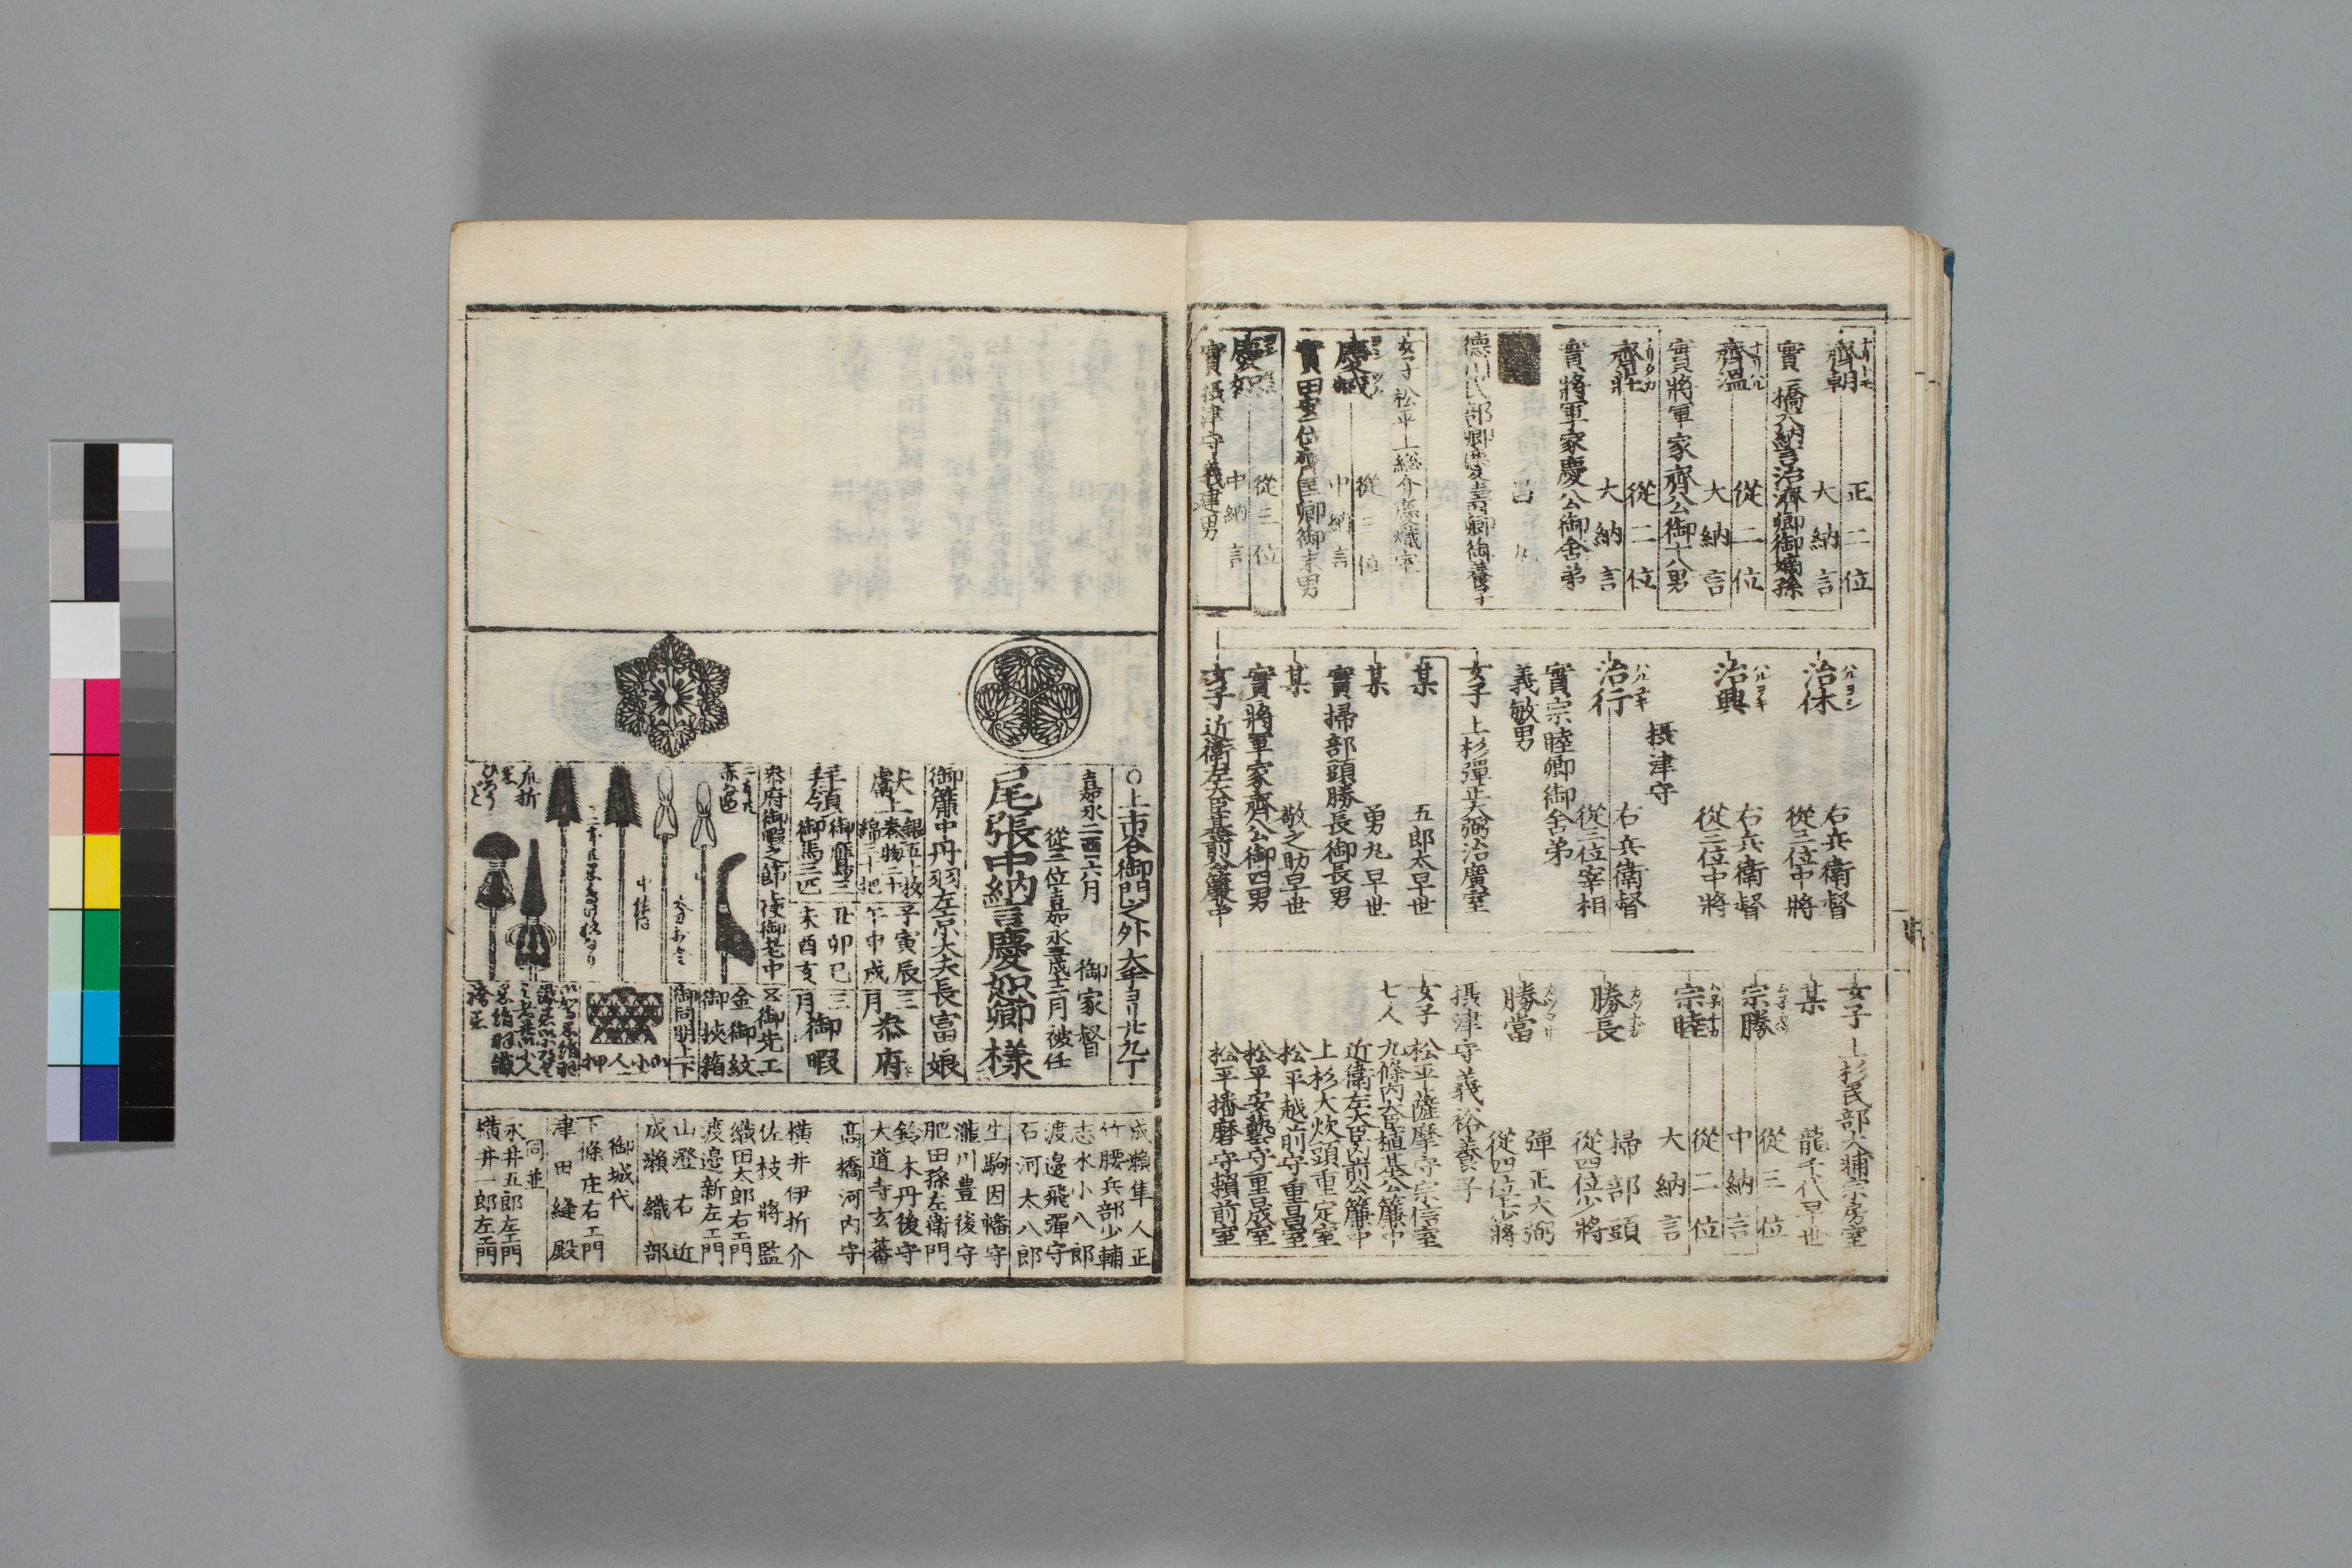 齊朝
正二位
大納言
實一橋大納言治濟卿御嫡孫
齊温
從二位
大納言
實將軍家齊公御十八男
齊莊
從二位
大納言
實將軍家慶公御舍弟
昌丸
德川民部卿慶壽卿御養子
女子 松平上総介慶熾室
慶臧
從三位
中納言
實田安一位齊匡卿御末男
慶恕
從三位
中納言
實摂津守義建男
治休
ハルヨシ
右兵衛督
從三位中將
治興
ハルオキ
右兵衛督
從三位中將
摂津守
治行
ハルユキ
右兵衛督
從三位宰相
實宗睦卿御舍弟
義敏男
女子 上杉彈正大弼治廣室
某 五郎太早世
某 勇丸早世
實掃部頭勝長御長男
某 敬之助早世
實將軍家齊公御四男
女子 近衛左大臣基前公簾中
女子 上杉民部大輔宗房室
某 龍千代早世
宗勝
從三位
中納言
宗睦
從二位
大納言
勝長
掃部頭
從四位少將
勝當
彈正大弼
從四位少將
摂津守義裕養子
女子 松平薩摩守宗信室
七人 九條内大臣植基公簾中
近衛左大臣内前公簾中
上杉大炊頭重定室
松平越前守重昌室
松平安藝守重晟室
松平播磨守頼前室
○上市谷御門之外
嘉永二酉六月 御家督
從三位嘉永三戌十二月被任
尾張中納言慶恕卿様
御簾中丹羽左京大夫長富娘
献上
銀五十枚
巻物二十
綿三十把
子寅辰
午申戌
三月
参府
拝領
御鷹三
御馬三匹
丑卯巳
未酉亥
三月
御暇
参府御暇之節 使御老中
御先エ
金御紋
御挟箱
御同朋上下
押
小人
爪折
成瀬隼人正
竹腰兵部少輔
志水小八郎
渡邉飛彈守
石河太八郎
生駒因幡守
瀧川豊後守
肥田孫左衛門
鈴木丹後守
大道寺玄蕃
高橋河内守
横井伊折介
佐枝將監
織田太郎右エ門
渡邉新左エ門
山澄右近
成瀬織部
御城代
下條庄右エ門
津田縫殿
同並
永井五郎左エ門
横井一郎左エ門